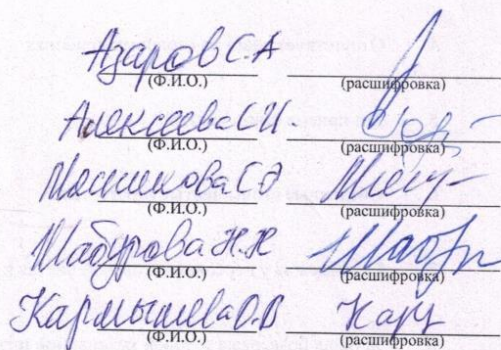 Азаров С.А
(Ф.И.О.) (расшифровка)
Алексеева С И
(Ф.И.О.) (расшифровка)
С Э
(Ф.И.О.) (расшифровка)
Шабурова Н.Н
(Ф.И.О.) (расшифровка)
Кармышева О.В
(Ф.И.О.) (расшифровка)